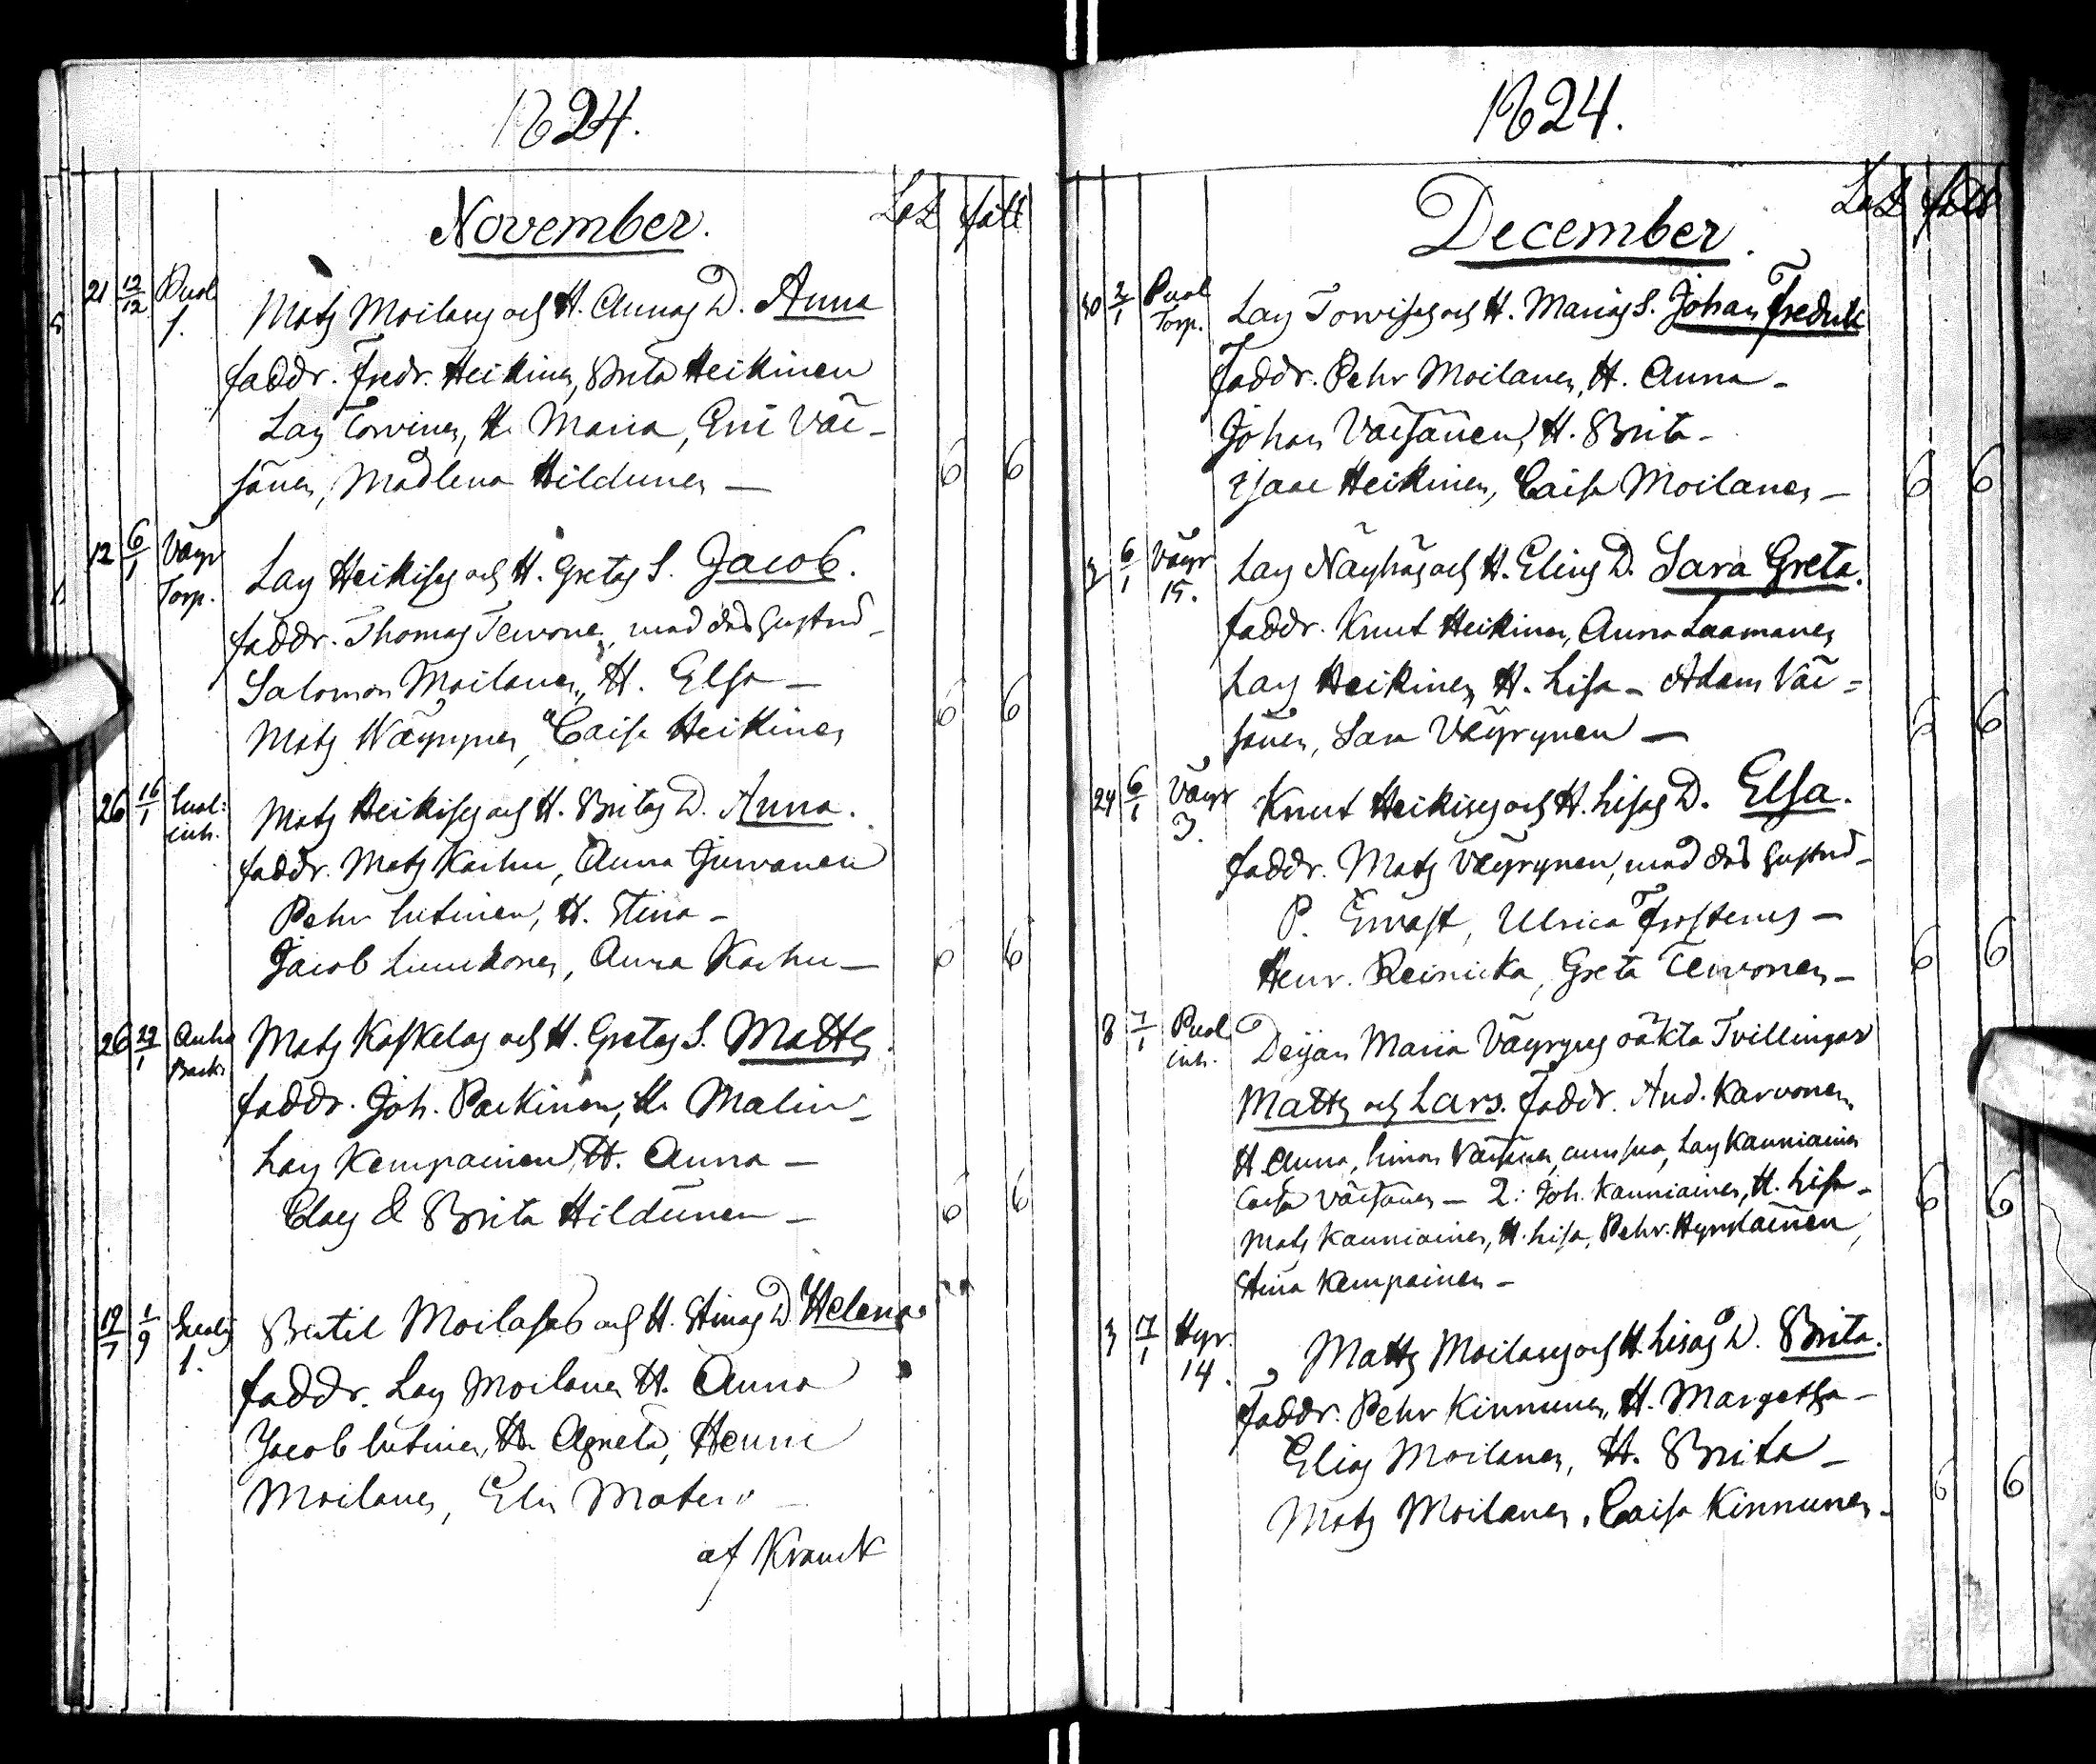 1824.
November.
Laz fatt
21 12/12 Puol 1.
Matz Moilans och H. Annas D. Anna
faddr. Fredr. Heikinen, Brita Heikinen
Lars Torvinen, H. Maria, Eric Väi-
sänen, Madlena Hildunen —
6 6
12 6/1 Väyr Torp.
Lars Heikises och H. Gretas S. Jacob.
faddr. Thomas Tervonen, med dess hustru
Salomon Moilanen, H. Elsa —
Matz Wäyrynen, Caisa Heikinen
6 6
26 16/1 inh.
Matz Heikises och H. Britas D. Anna.
faddr. Matz Karhu, Anna Juvanen
Pehr Lutinen, H. Stina —
Jacob Luukonen, Anna Karhu —
6 6
26 29/1 Backst
Matz Kaskelas och H. Gretas S. Matts
faddr. Joh. Parkinen, H. Malin —
Lars Kempainen, H. Anna —
Clas & Brita Hildunen —
6 6
19/7 1/9 1.
Bertil Moilases och H. Stinas D. Helena.
faddr. Lars Moilanen H. Anna
Jacob Lutinen, H. Agneta, Henric
Moilanen, Elin Matero —
af Kranck
1824.
December.
Laz fatt
30 2/1 Puol Torp.
Lars Torvises och H. Marias S. Johan Fredrik
Faddr. Pehr Moilanen, H. Anna —
Johan Väisänen, H. Brita —
Isaac Heikinen, Caisa Moilanen —
6 6
3 6/1 Väyr 15.
Lars Näyhäs och H. Elins D. Sara Greta.
faddr. Knut Heikinen, Anna Laamanen
Lars Heikinen H. Lisa — Adam Väi=
sänen, Sara Väyrynen —
6 6
24 6/1 Väyr 3.
Knut Heikises och H. Lisas D. Elsa.
faddr. Matz Väyrynen, med dess hustru —
P. Ervast, Ulrica Frosterus —
Henr. Reinicka, Greta Tervonen —
6 6
8 7/1 Puol inh.
Deijan Maria Väyryns oäkta Tvillingar
Matts och Lars. Faddr. And. Karvonen
H. Anna, Simon Väisänen, Lars Kauniainen
Caisa Väisänen — 2: Joh. Kauniainen, H. Lisa —
Matz Kauniainen, H. Lisa, Pehr Hyrkäinen,
Stina Kempainen —
6 6
3 17/1 Hyr. 14.
Matts Moilans och H. Lisas D. Brita.
Faddr. Pehr Kinnunen, H. Margetha —
Elias Moilanen, H. Brita —
Matz Moilanen, Caisa Kinnunen —
6 6